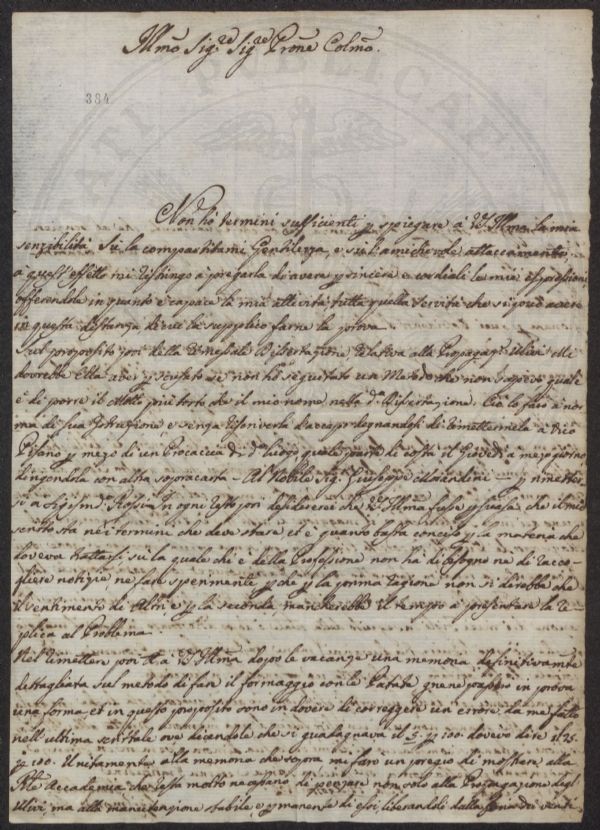 Illmo Sig.re Sig.re Prone Colmo.
384
Non ho termini sufficienti p spiegare à VS. Illma la mia
senzibilità su la compartitami Gentilezza, e su l'amichevole attaccamento,
a quest'effetto mi ristringo a pregarla di avere p sincere e cordiali le mie espressioni
offerendole in quanto è capace la mia attività tutta quella servitù che si può avere
in questa distanza di cui la supplico farne la prova.
Sul proposito poi della Dissertazione relativa alla Propagazne Ulivi Mi
dovrebbe Ella aver p scusato se non ho seguitato un Metodo che non sapevo quale
è di porre il Motto piuttosto che il mio nome nella Dissertazione. Ciò le faco a nor
ma di sua Istruzione, e senza riscriverla degnandosi di rimettermela a Vico
Pisano p mezo di un Procaccia di do luogo quale parte di costà il Giovedì a mezogiorno
dirigendola con altra sopracarta - Al Nobile Sig. Giuseppe Morandini - p rimetter
si a Rossi. In ogni resto poi desidererei che VS Illma fusse p suasa che il mio
scritto stà nei termini che deve stare ed è quanto basta conciso p la materia che
doveva trattarsi su la quale chi è della Professione non ha di bisogno ne di racco-
gliere notizie, ne fare sperimenti p che p la prima ragione non si direbbe che
il sentimento di Altri e p la seconda mancherebbe il tempo a presentare la re
plica al Problema.
Nel rimettere poi a VS Illma dopo le vacanze una memoria definitivamte
dettagliata sul metodo di fare il formaggio con le Patate in prova
una forma ed in questo proposito sono in dovere di correggere un errore da me fatto
nell'ultima scrittale ove dicendole che si guadagnava il 5. p 100. dovevo dire il 25.
p 100. Unitamente alla memoria che sopra mi farò un pregio di mostrare alla
Rle Accademia che resta molto necessario di pensare non solo alla Propagazione degl'
Ulivi ma alla manutenzione stabile, e p manente di essi liberandoli dalla dei venti